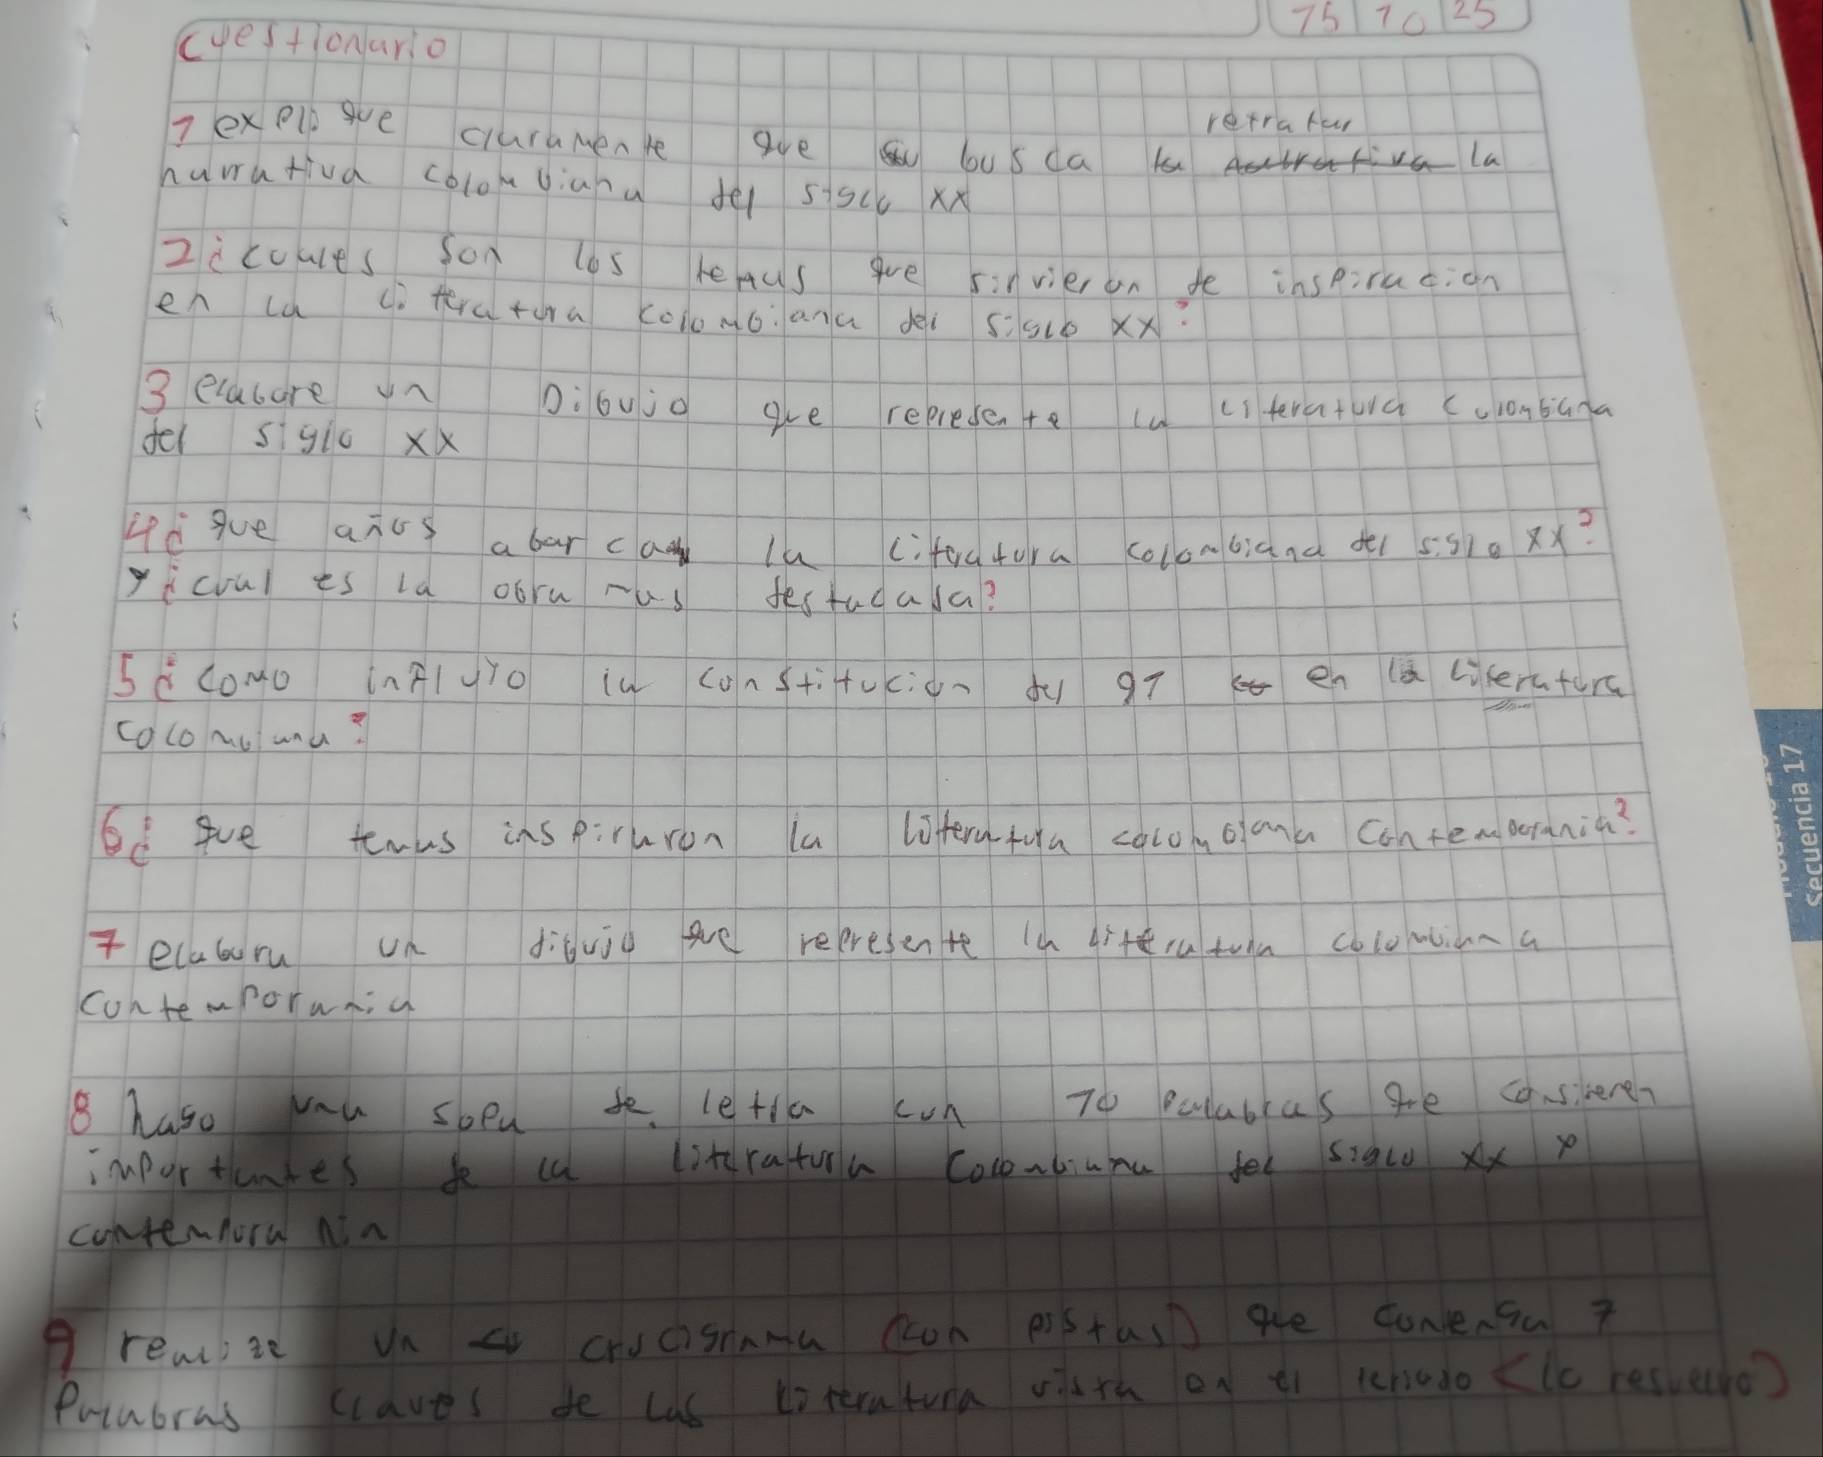 15 10 25
cuestionario
1 explique claramente que busca retratar la
narrativa colomviana del siglo XX
2 ¿cuales son los temas que sirvieron de inspiracion
en la literatura colombiana del siglo XX?
3 elabore un Dibujo que represente la literatura colombiana
del siglo XX
4 ¿que años abarca la literatura colombiana del siglo XX?
y ¿cual es la obra mas destacada?
5 ¿como influyo la constitucion del 91 en la literatura
colombiana?
6 ¿que temas inspiraron la literatura colombiana contemporania?
7 elabora un dibujo que represente la literatura colombiana
contemporania
8 hago una sopa de letra con 10 palabras que consideren
importantes de la literatura colombiana del siglo XX y
contemporania
9 realize un crucigrama (con pistas) que contenga 7
palabras claves de las literatura vista en el periodo (lo resuelvo)
Secuencia 17